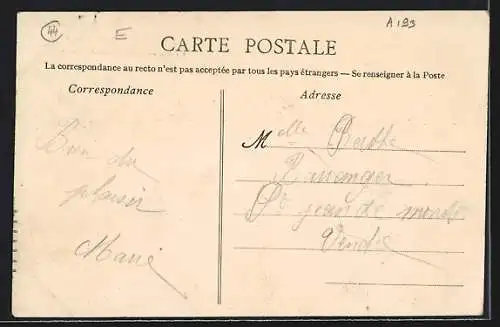 44
E
A193
CARTE POSTALE
La correspondance au recto n'est pas acceptée par tous les pays étrangers — Se renseigner à la Poste
Correspondance
Adresse
Mlle Berthe
Bien du
plaisir
Marie
St jean de monts
Vendée